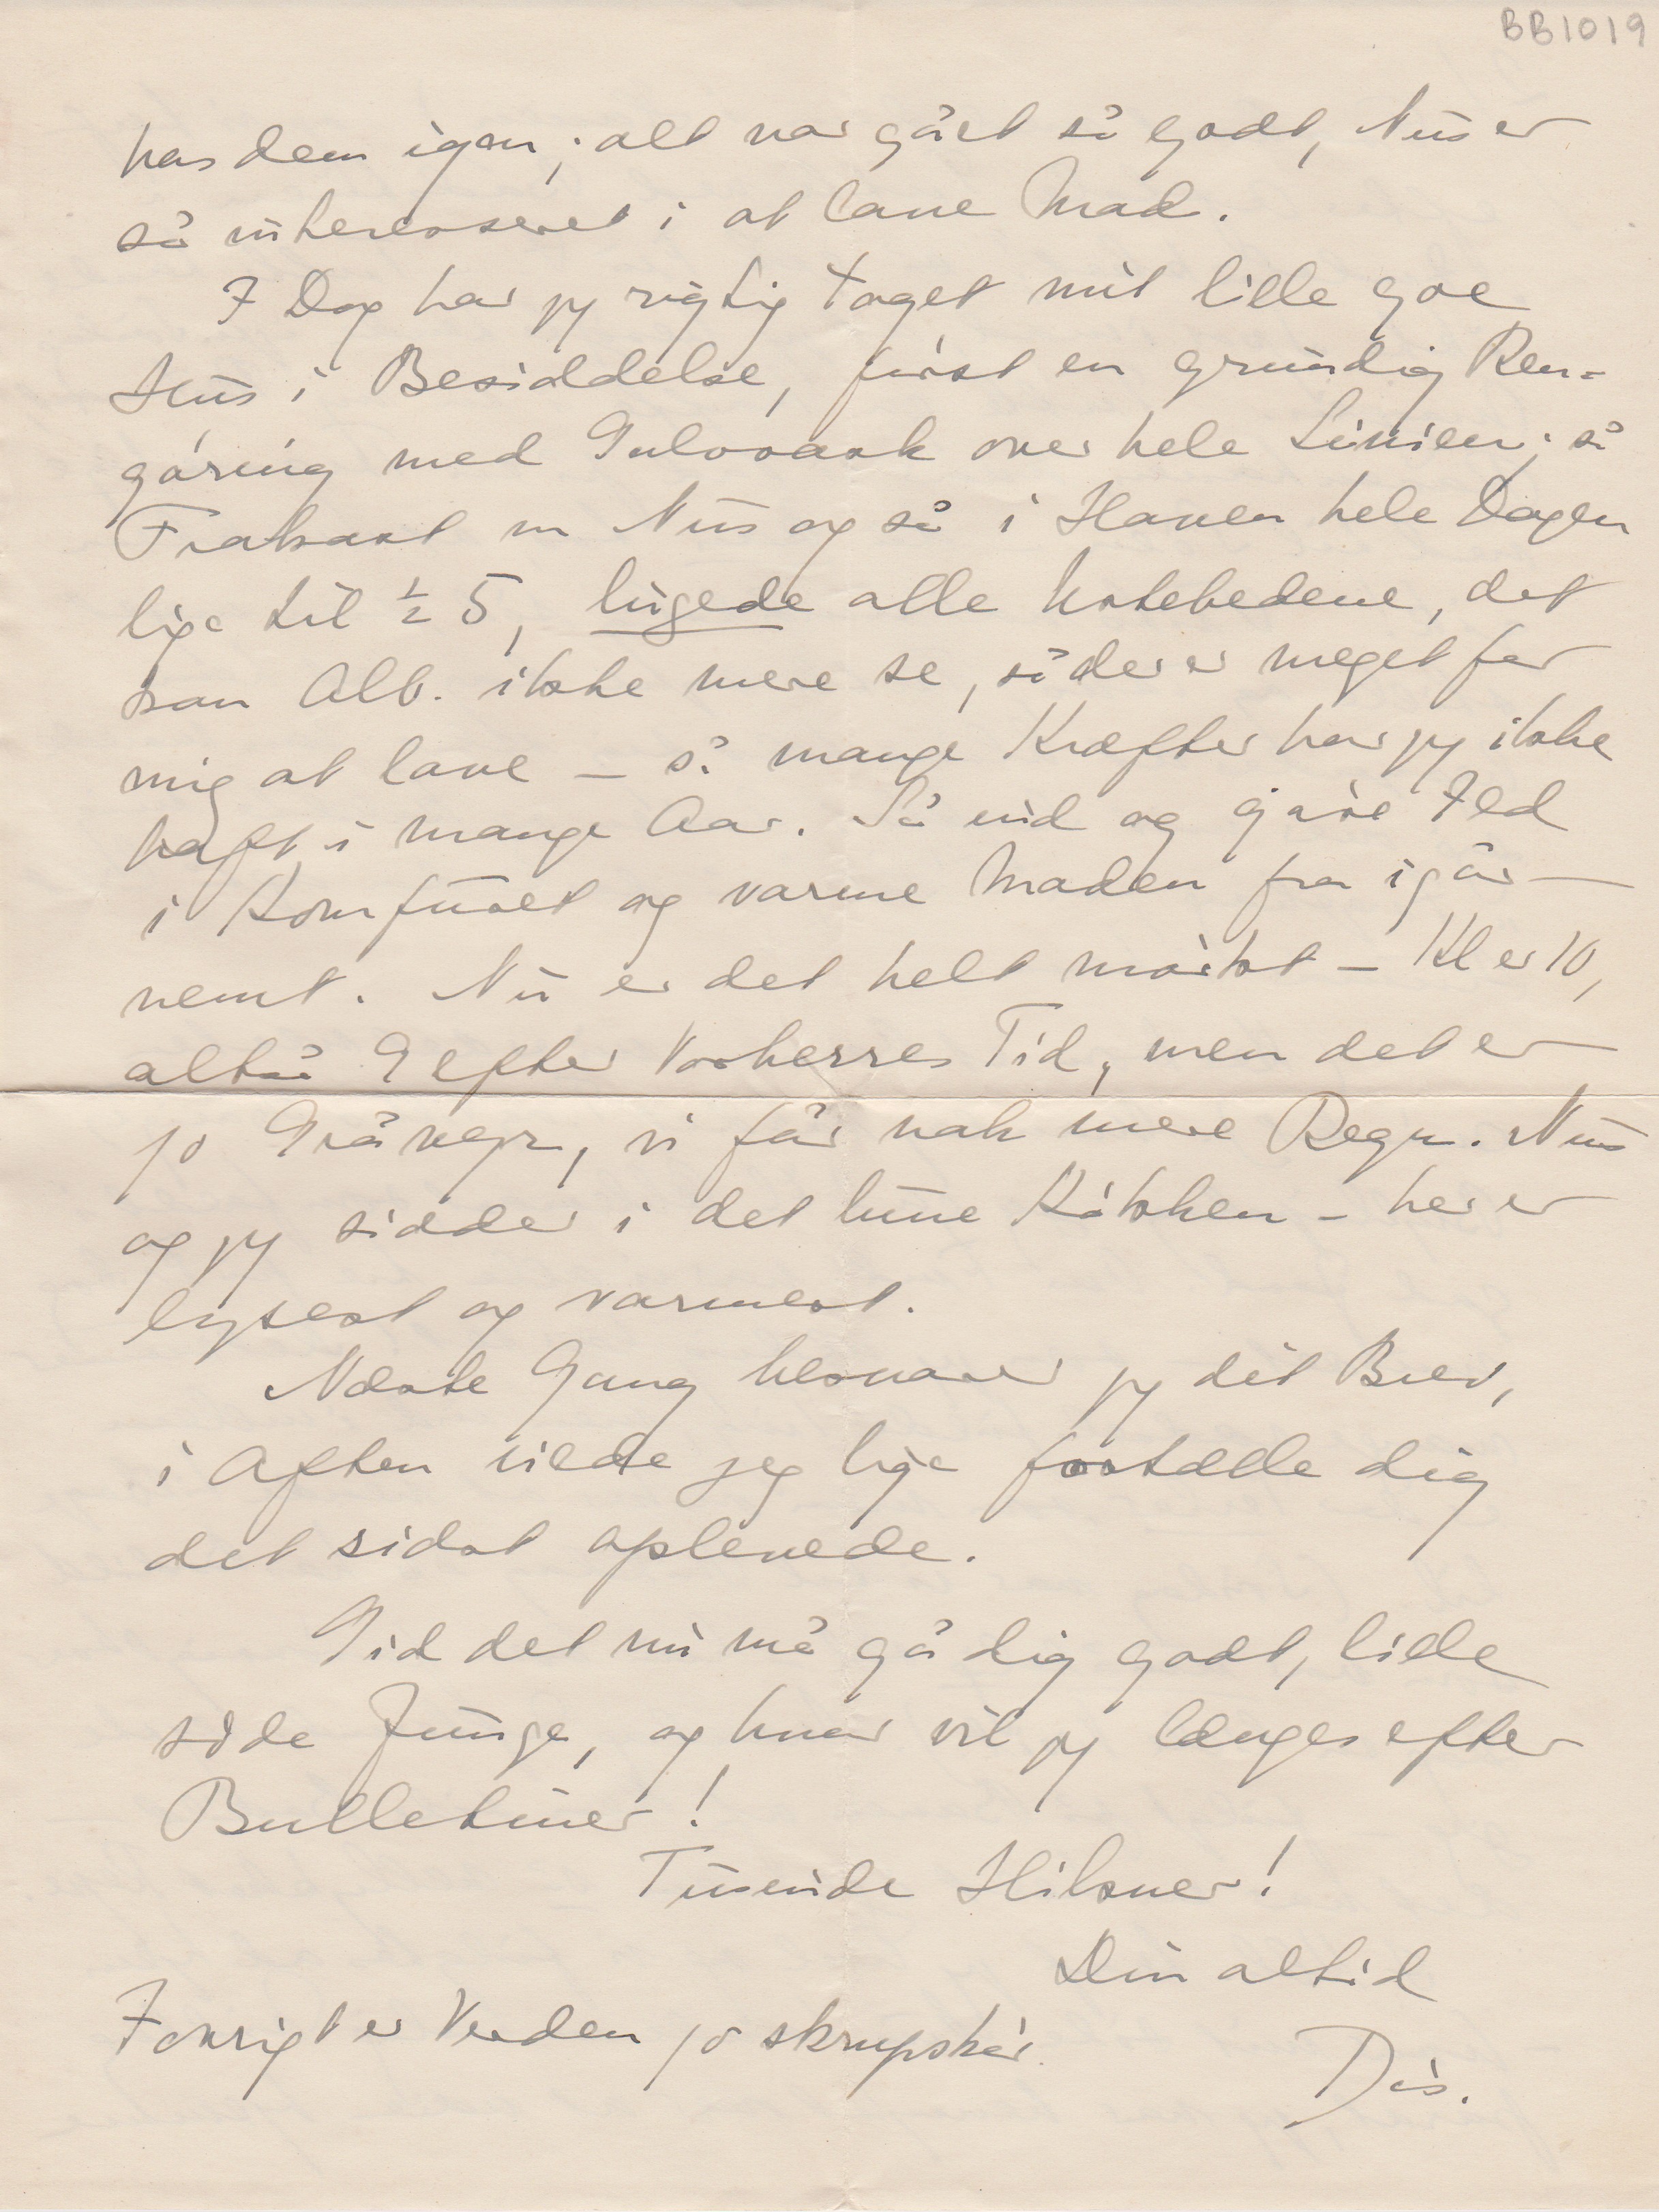 BB1019
hos dem igen; alt var gået så godt, Nus er
så interesseret i at lave Mad.
I Dag har jeg rigtig taget mit lille goe
Hus i Besiddelse, først en grundig Ren-
gøring med Gulvvask over hele Linien; så
Frokost m Nus og så i Haven hele Dagen
lige til ½ 5, lugede alle bedene, det
kan Alb. ikke mere se, så der er meget for
mig at lave – så mange Kræfter har jeg ikke
haft i mange Aar. Så ind og gøre Ild
i Komfuret og varme Maden fra igår –
nemt. Nu er det helt mørkt – Kl er 10,
altså 9 efter Vorherres Tid, men det er
jo Gråvejr, vi får nok mere Regn. Nus
og jeg sidder i det lune Køkken – her er
lysest og varmest.
Næste Gang besvarer jeg dit Brev,
i Aften vilde jeg lige fortælle dig
det sidst oplevede.
Gid det nu må gå dig godt, lille
søde Junge, og hvor vil jeg længes efter
Bulletiner!
Tusinde Hilsner!
Din altid
Dis.
Forvrigt er Verden jo skrupskør.